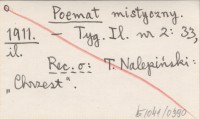 o
Poemat mistyczny.
1911. – Tyg. Il. nr 2: 33,
il.
Rec. o: T. Nalepiński:
„Chrzest".